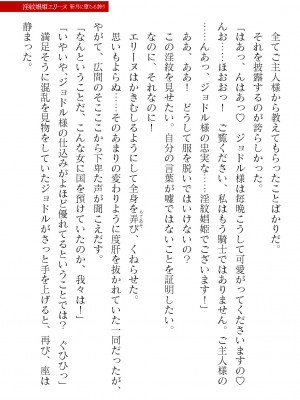 淫紋娼姫エリーヌ 新月に堕ちる誇り
全てご主人様から教えてもらったことばかりだ。
それを披露するのが誇らしかった。
「はあ、んはあっ♡　ジョドル様は毎晩こうして可愛がってくださいますの♡
んお……ほおおっ！　ご覧ください、私はもう騎士ではありません。ご主人様の
……んあっ、ジョドル様の忠実な……淫紋娼姫でございます！」
ああ、ああ！　どうして服を脱いではいけないの？
この淫紋を見せたい。自分の言葉が嘘ではないことを証明したい。
なのに、それなのに！
エリーヌはかきむしるようにして全身を弄び、くねらせた。
思いもよらぬ……そのあまりの変わりように度肝を抜かれていた一同だったが、
やがて、広間のそこここから下卑た声が聞こえだす。
「なんということだ、こんな女に国を預けていたのか、我々は！」
「いやいや、ジョドル様の仕込みがよほど優れてるということでは？　ぐひひっ」
満足そうに混乱を見物をしていたジョドルがさっと手を上げると、再び、座は
静まった。